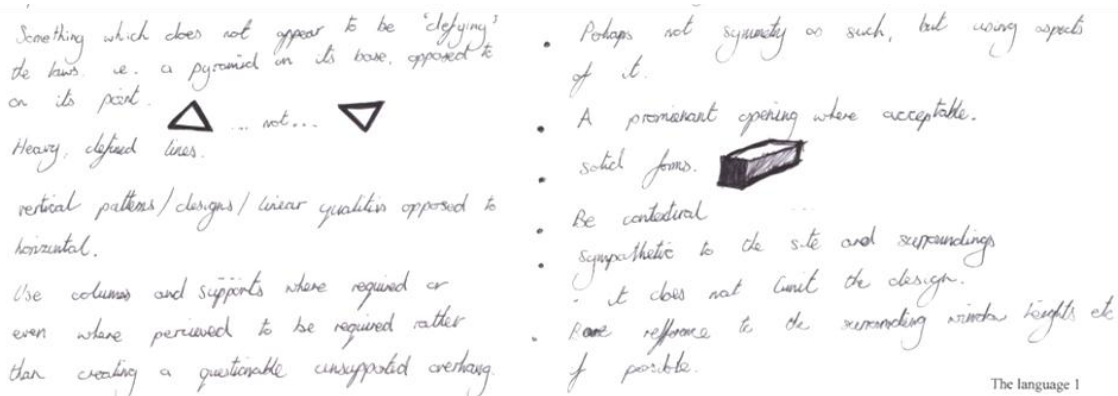 Something which does not appear to be 'defying'
the laws. i.e. a pyramid on its base, opposed to
on its point.
... not...
Heavy, defined lines.
vertical patterns/designs/linear qualities opposed to
horizontal.
Use columns and supports where required or
even where percieved to be required rather
than creating a questionable unsupported overhang.
• Perhaps not symmetry as such, but using aspects
of it.
• A prominant opening where acceptable.
• Solid forms.
• Be contextural
• Sympathetic to the site and surroundings
- it does not limit the design.
• refference to the surrounding window heights etc
if possible.
The language 1